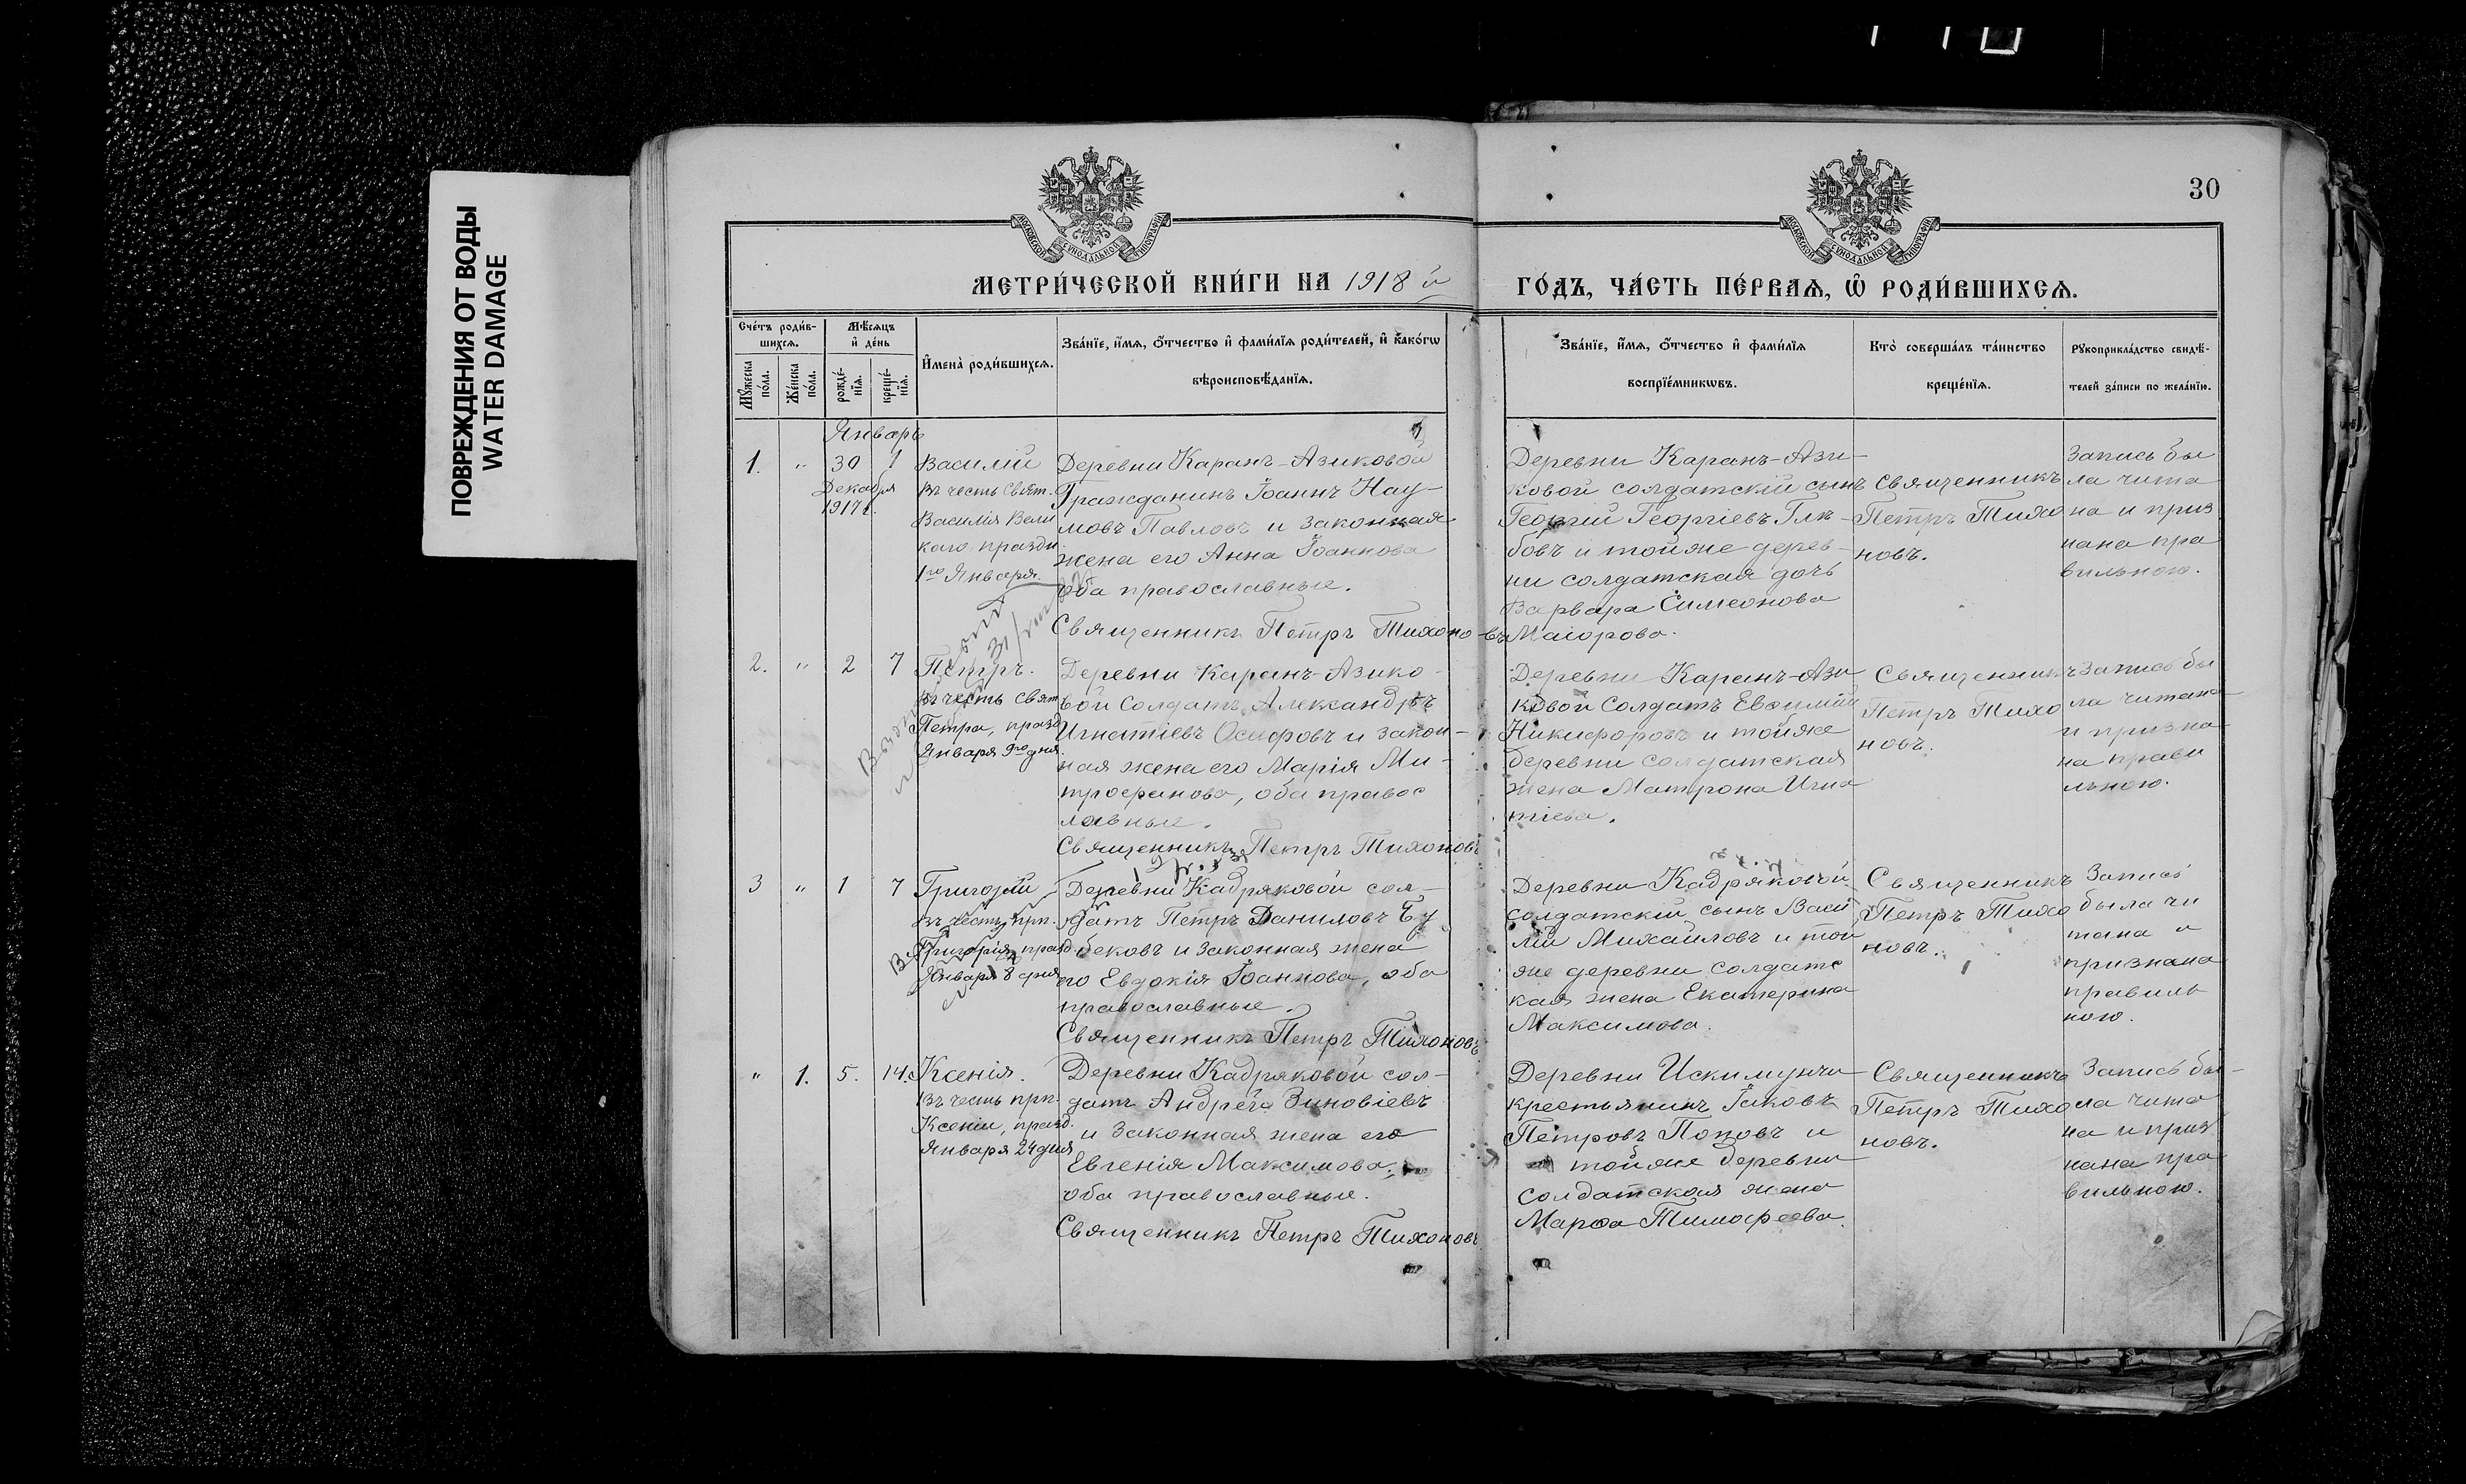 ПОВРЕЖДЕНИЯ ОТ ВОДЫ
WATER DAMAGE
30
МОСКОВСКОЙ СѴНОДАЛЬНОЙ ТИПОГРАФІИ
МОСКОВСКОЙ СѴНОДАЛЬНОЙ ТИПОГРАФІИ
МЕТРИ́ЧЕСКОЙ КНИ́ГИ НА 1918 й
ГО́ДЪ, ЧА́СТЬ ПЕ́РВАѦ, Ѽ РОДИ́ВШИХСѦ.
Сче́тъ роди́в-
шихсѧ.
Мꙋ́жеска
по́ла.
Же́нска
по́ла.
Мѣ́сѧцъ
и҆ де́нь
рожде́-
нїѧ.
креще́-
нїѧ.
И҆мена̀ роди́вшихсѧ.
Зва́нїе, и҆́мѧ, ѻ҆́тчество и҆ фами́лїѧ роди́телей, и҆ како́гѡ
вѣроисповѣ́данїѧ.
Зва́нїе, и҆́мѧ, ѻ҆́тчество и҆ фами́лїѧ
воспрїе́мникѡвъ.
Кто̀ соверша́лъ та́инство
креще́нїѧ.
Рꙋкоприкла́дство свидѣ́-
телей за́писи по жела́нїю.
Январь
1. " 30 1
Декабря
1917 г.
Василій
въ честь Свят.
Василія Вели
каго праздн.
1го Января.
Деревни Каранъ-Азиковой
Гражданинъ Іоаннъ Нау-
мовъ Павловъ и законная
жена его Анна Іоаннова
оба православные.
Священникъ Петръ Тихоновъ
Деревни Каранъ-Ази-
ковой солдатскій сынъ
Георгій Георгіевъ Глѣ-
бовъ и тойже дерев-
ни солдатская дочь
Варвара Симеонова
Маіорова.
Священникъ
Петръ Тихо
новъ.
Запись бы
ла чита
на и приз
нана пра
вильною.
2. " 2 7
Петръ.
въ честь Свят
Петра, празд
Января 9го дня.
Деревни Каранъ-Азико-
вой Солдатъ Александръ
Игнатіевъ Осиповъ и закон-
ная жена его Марія Ми-
трофанова, оба правос
лавные.
Священникъ Петръ Тихоновъ
Деревни Каранъ-Ази
ковой Солдатъ Евѳимій
Никифоровъ и тойже
деревни солдатская
жена Матрона Игна
тіева.
Священникъ
Петръ Тихо
новъ.
Запись бы
ла читана
и призна
на прави
льною.
3 " 1 7
Григорій
въ честь прп.
Григорія, празд.
Января 8 дня
Деревни Кадряковой сол-
датъ Петръ Даниловъ Бу
бековъ и законная жена
его Евдокія Іоаннова, оба
православные.
Священникъ Петръ Тихоновъ
Деревни Кадряковой
солдатскій сынъ Васи
лій Михаиловъ и той
же деревни солдатс
кая жена Екатерина
Максимова.
Священникъ
Петръ Тихо
новъ.
Запись
была чи
тана и
признана
правиль
ною.
" 1. 5. 14.
Ксенія.
Въ честь прп.
Ксеніи, празд.
Января 24 дня
Деревни Кадряковой сол-
датъ Андрей Зиновіевъ
и законная жена его
Евгенія Максимова,
оба православные.
Священникъ Петръ Тихоновъ
Деревни Искимунчи
крестьянинъ Іаковъ
Петровъ Поповъ и
тойже деревни
солдатская жена
Марѳа Тимофеева.
Священникъ
Петръ Тихо
новъ.
Запись бы-
ла чита
на и приз
нана пра
вильною.